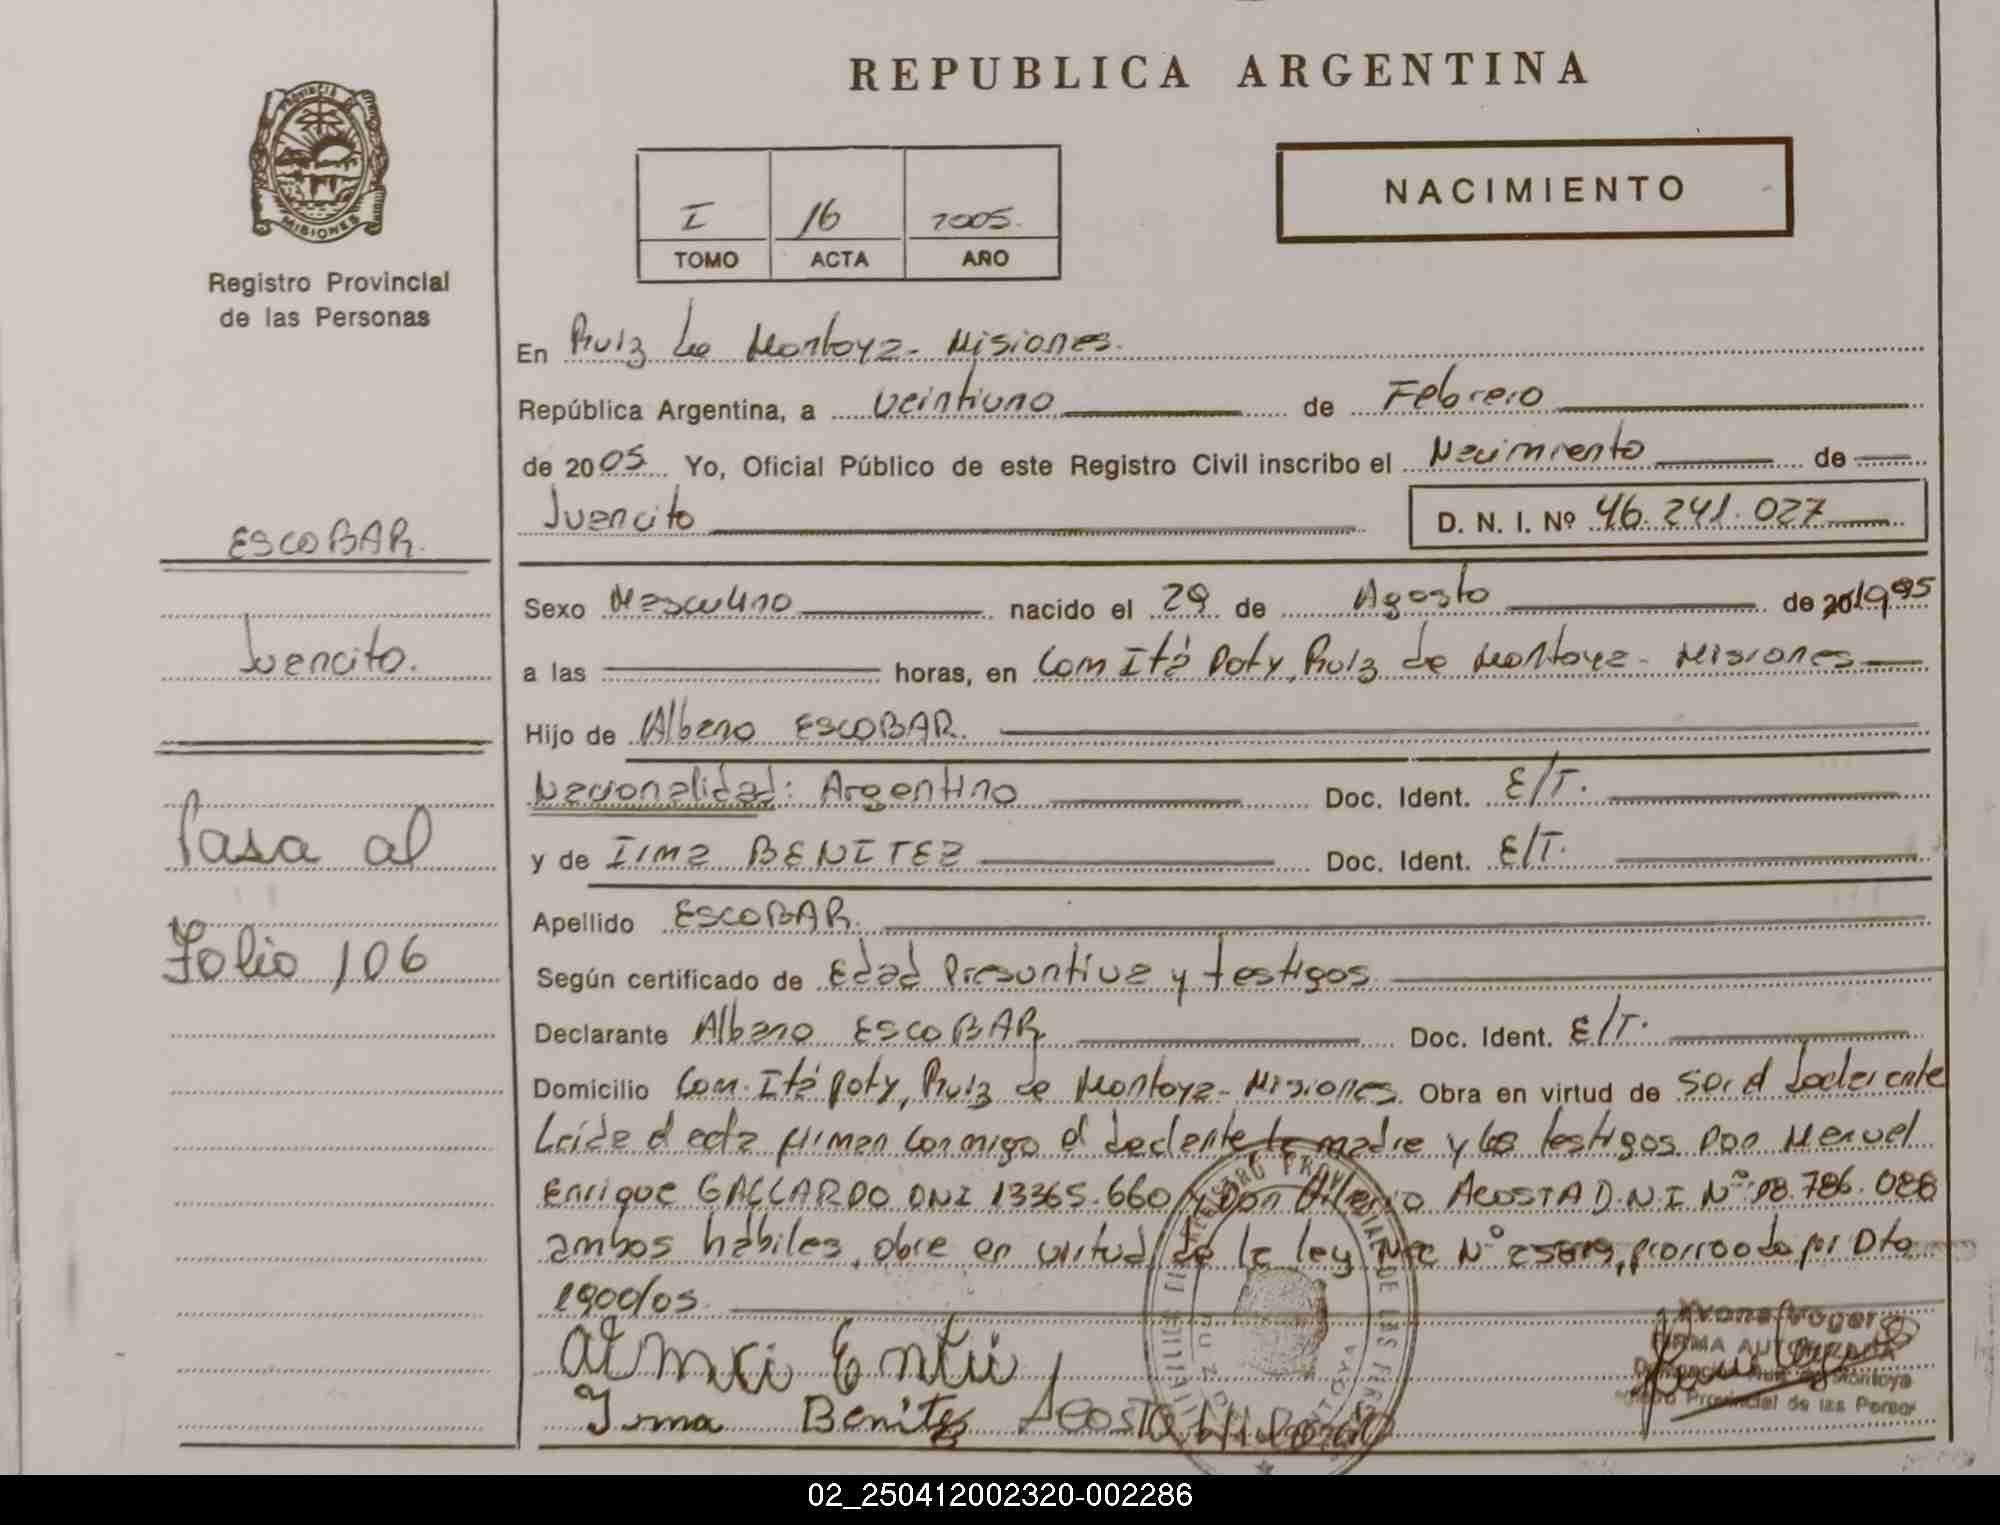 REPUBLICA ARGENTINA
PROVINCIA DE
MISIONES
Registro Provincial
de las Personas
NACIMIENTO
I 16 2005.
TOMO ACTA AÑO
En Ruiz de Montoya - Misiones.
República Argentina, a veintiuno de Febrero
de 2005 Yo, Oficial Público de este Registro Civil inscribo el Nacimiento de
Juancito
D. N. I. Nº 46.241.027
ESCOBAR.
Juancito.
Pasa al
Folio 106
Sexo Masculino nacido el 29 de Agosto de 1995
a las horas, en Com Itá Poty, Ruiz de Montoya - Misiones
Hijo de Albano ESCOBAR.
Nacionalidad: Argentino Doc. Ident. E/T.
y de Irma BENITEZ Doc. Ident. E/T.
Apellido ESCOBAR.
Según certificado de Edad Presuntiva y testigos
Declarante Albano ESCOBAR Doc. Ident. E/T.
Domicilio Com. Itá poty, Ruiz de Montoya - Misiones. Obra en virtud de ser el
Leída el acta firman conmigo el la madre y los testigos Don Manuel
Enrique GALLARDO DNI 13365.660 y Don Hilario ACOSTA D.N.I Nº 18.786.088
ambos hábiles, obra en virtud de la ley Nac Nº por Dto
1900/05.
Irma Benitez Acosta Hilario
REGISTRO PROVINCIAL DE LAS PERSONAS
FIRMA AUTORIZADA
Ruiz de Montoya
Provincial de las Person
02_250412002320-002286